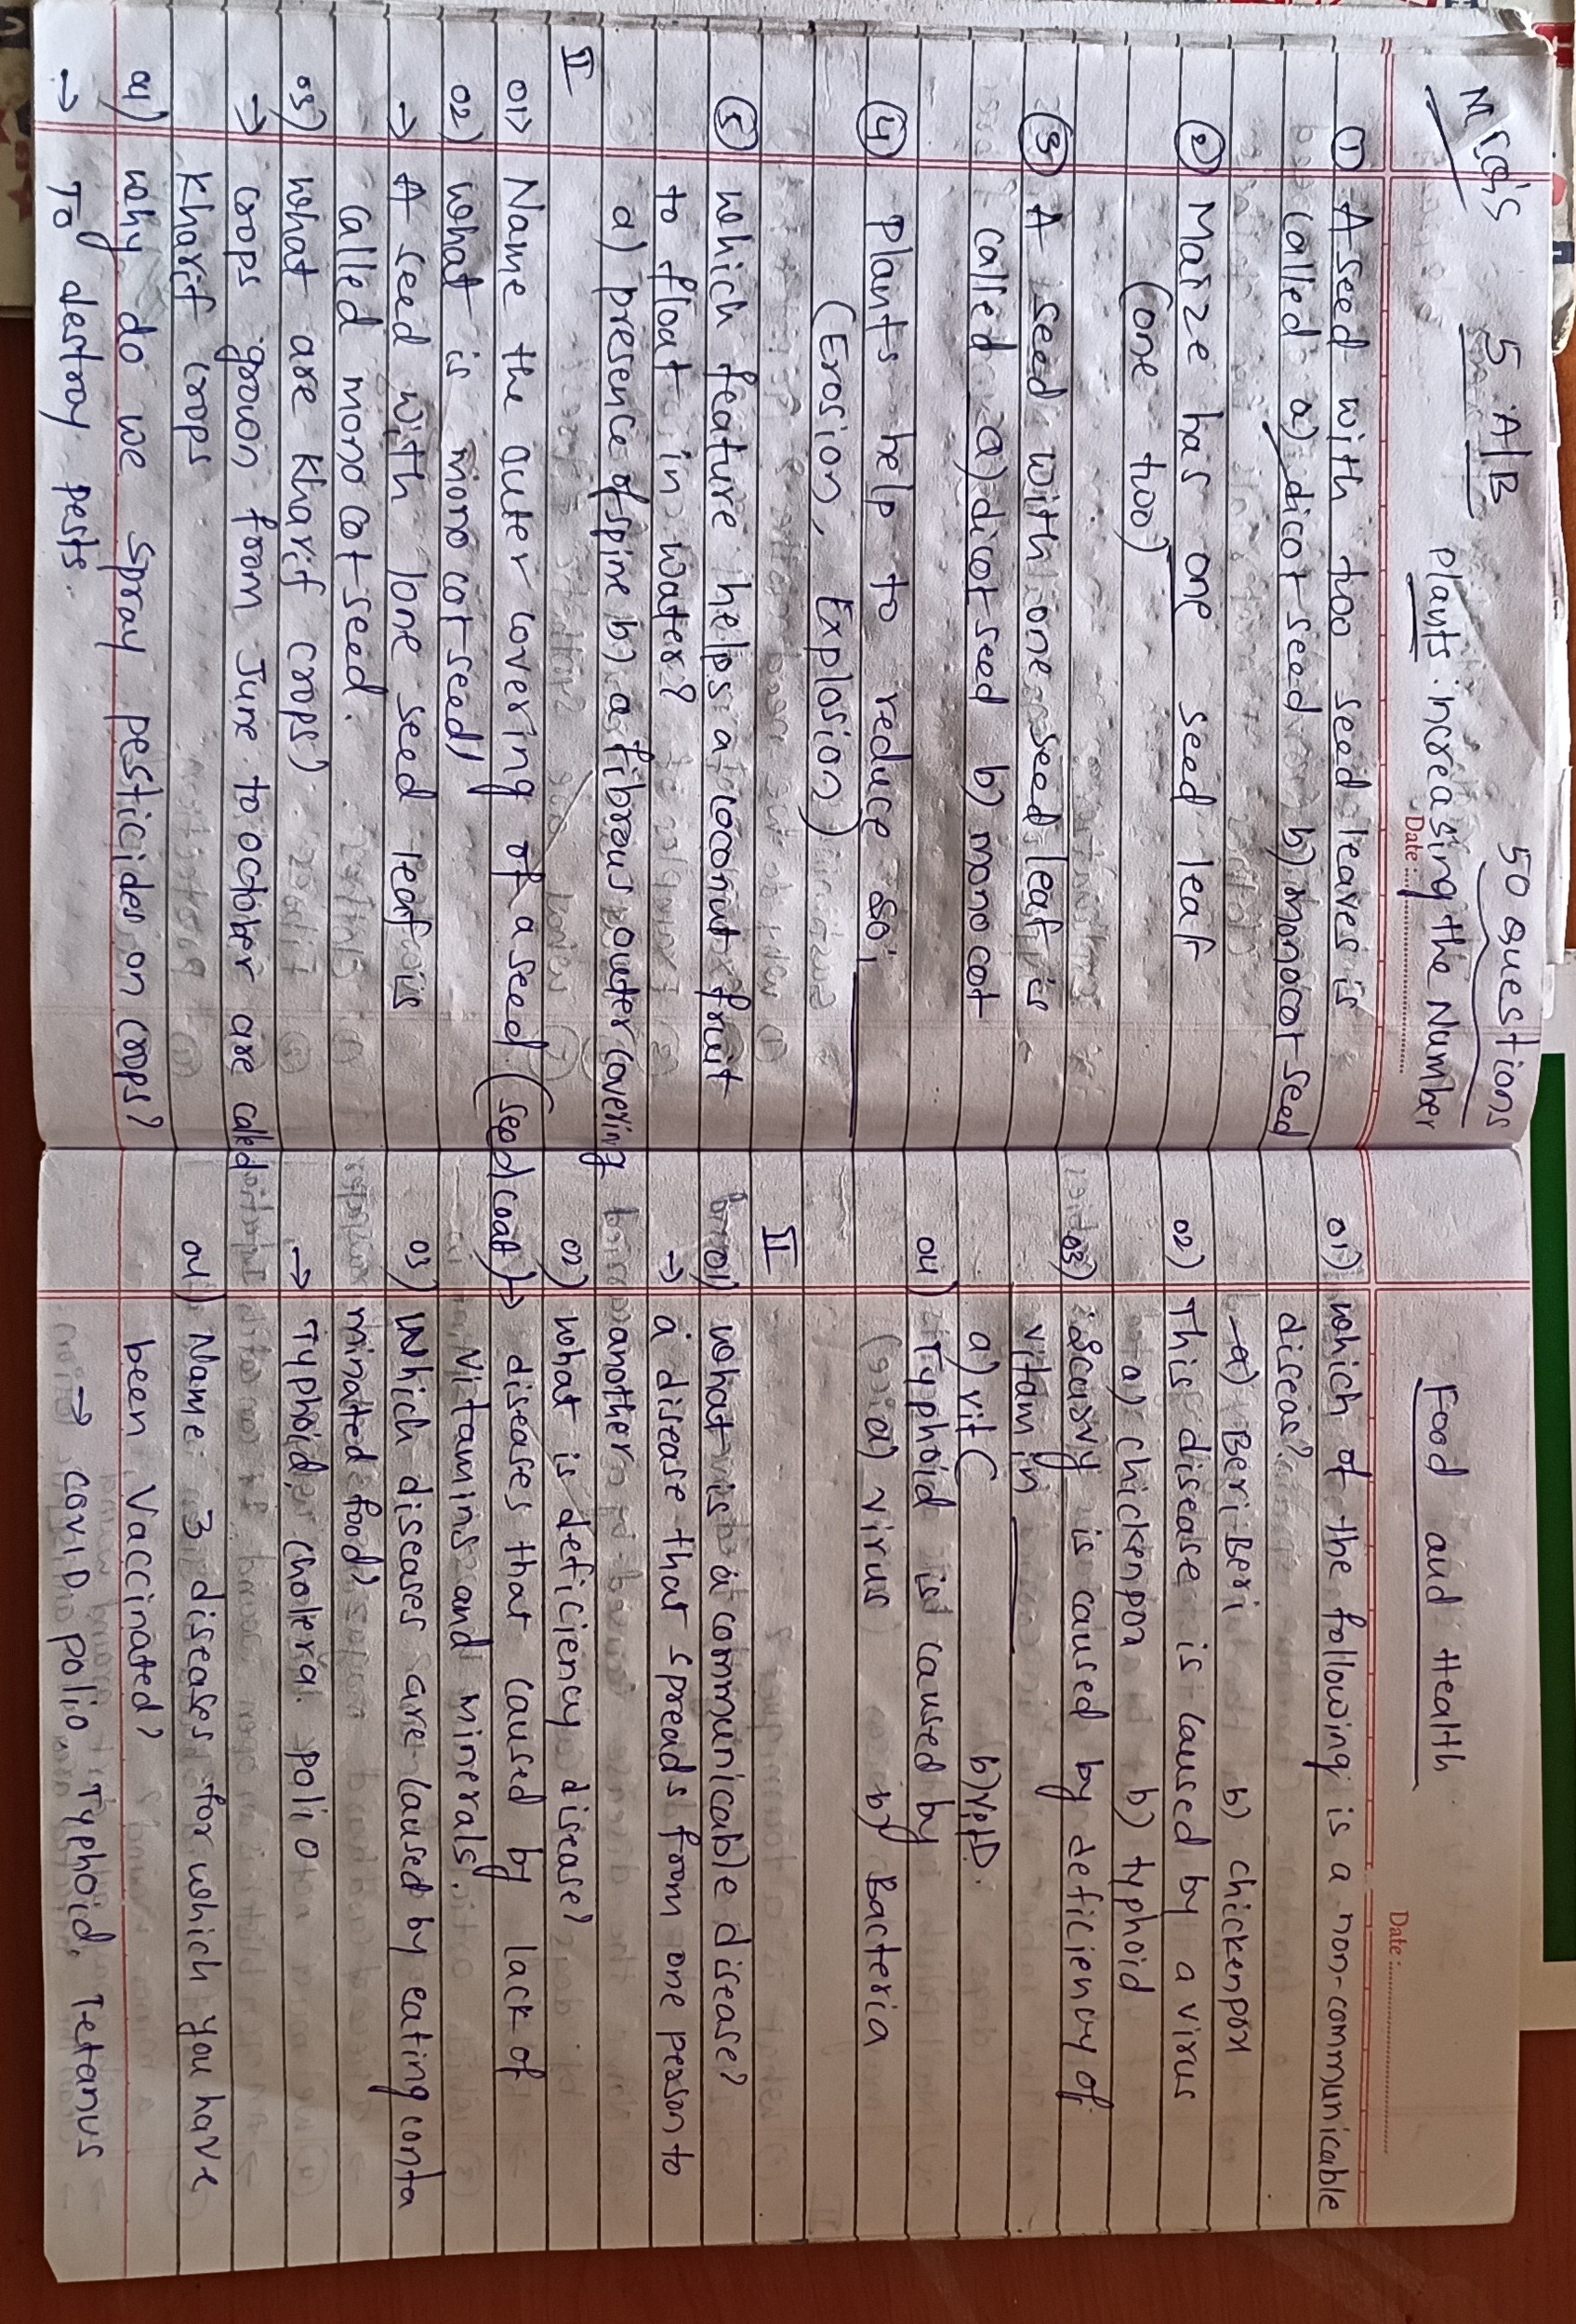 MCQ's 5 A/B 50 questions
plants increasing the Number
Date:
① A seed with two seed leaves is
called a) dicot seed b) monocot seed
② Maize has one seed leaf
(one two)
③ A seed with one seed leaf is
called a) dicot seed b) monocot
④ Plants help to reduce soi
(Erosion, Explosion)
⑤ which feature helps a coconut fruit
to float in water?
a) presence of spine b) a fibrous outer covering
II
01) Name the outer covering of a seed (seed coat)
02) what is mono cot seed?
→ A seed with one seed leaf is
called mono cot seed.
03) what are Kharif crops?
→ crops grown from June to october are called
Kharif crops
04) why do we spray pesticides on crops?
→ To destroy pests.
Food and Health
Date:
01) which of the following is a non-communicable
diseas?
a) Beri Beri b) chickenpox
02) This disease is caused by a virus
a) chickenpox b) typhoid
03) Scurvy is caused by deficiency of
vitamin
a) vit C b) vit D.
04) Typhoid is caused by
a) virus b) Bacteria
II
01) what is a communicable disease?
→ a disease that spreads from one person to
another
02) what is deficiency disease?
→ diseases that caused by lack of
vitamins and minerals.
03) Which diseases are caused by eating conta
minated food?
→ Typhoid, cholera. polio
04) Name 3 diseases for which you have
been Vaccinated?
→ COVID polio, Typhoid, Tetanus